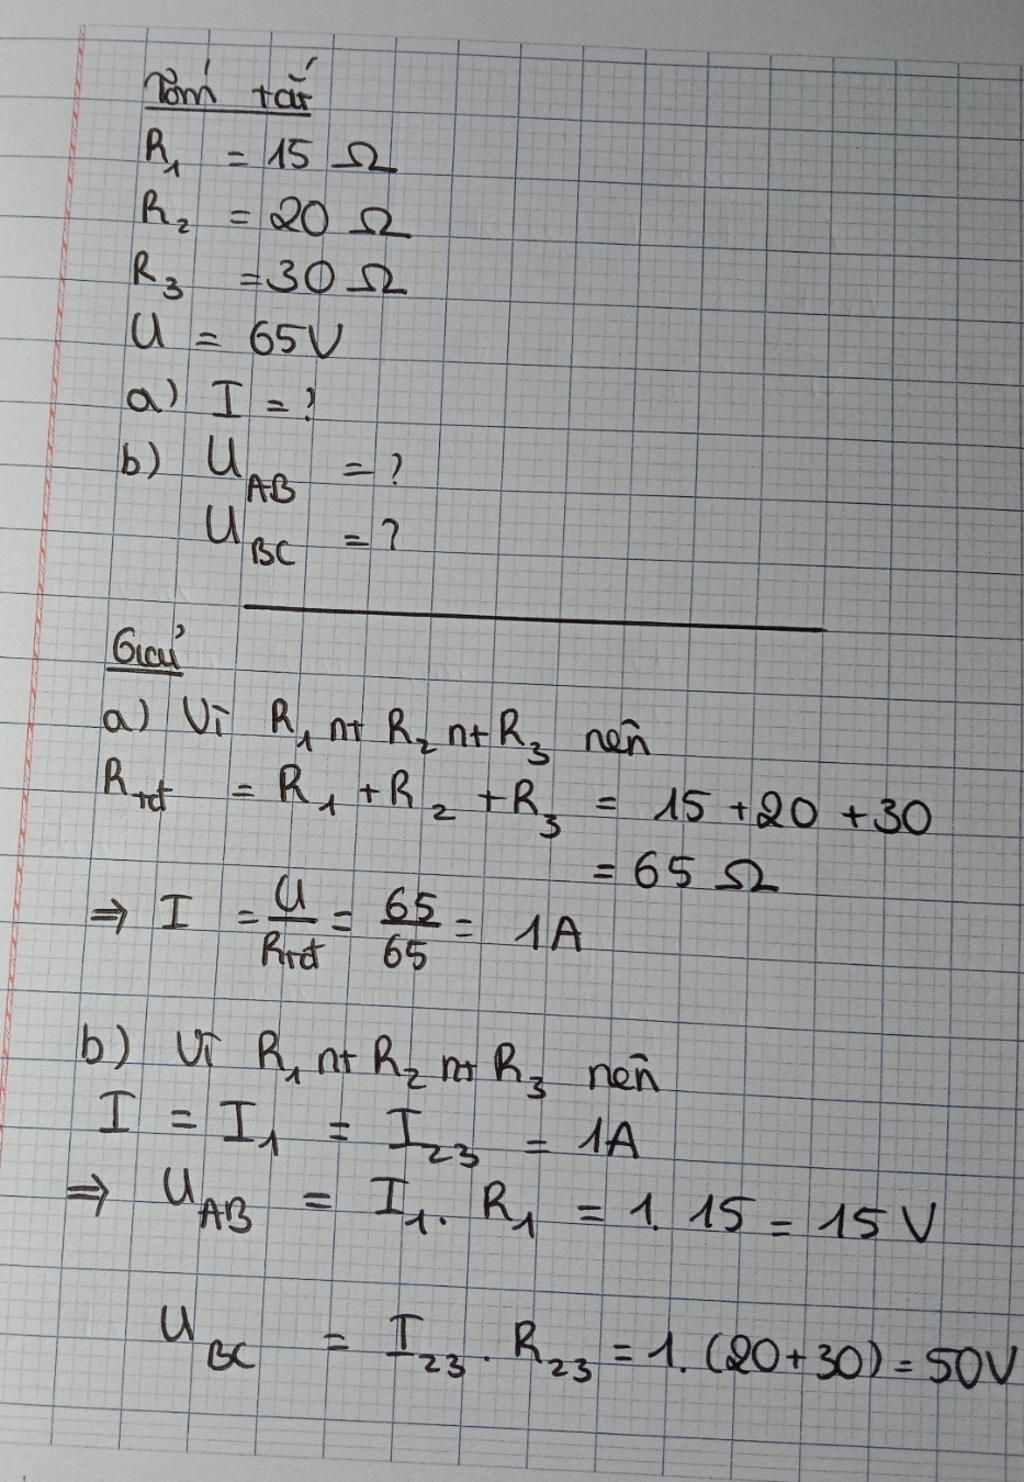 Tóm tắt
R₁ = 15 Ω
R₂ = 20 Ω
R₃ = 30 Ω
U = 65V
a) I = ?
b) U_AB = ?
U_BC = ?
Giải
a) Vì R₁ nt R₂ nt R₃ nên
Rtđ = R₁ + R₂ + R₃ = 15 + 20 + 30
= 65 Ω
⇒ I = U/Rtđ = 65/65 = 1A
b) Vì R₁ nt R₂ nt R₃ nên
I = I₁ = I₂₃ = 1A
⇒ U_AB = I₁. R₁ = 1. 15 = 15 V
U_BC = I₂₃. R₂₃ = 1. (20+30) = 50V